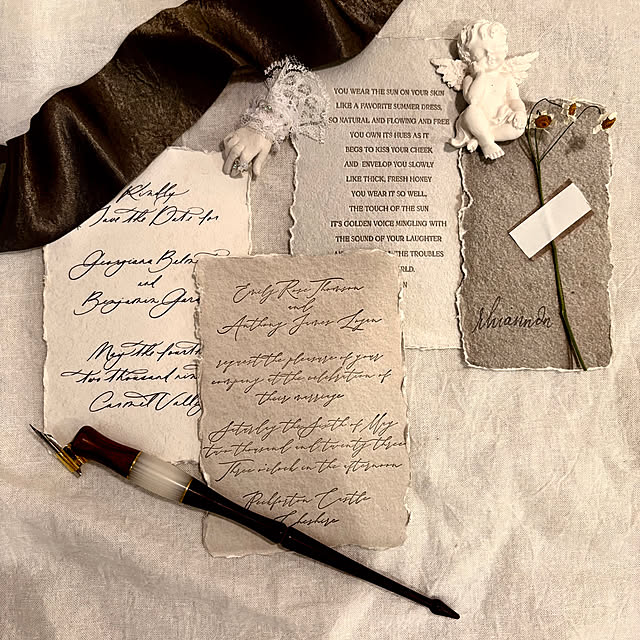 Kindly
Save the Date for
Georgiana
and
Benjamin
May the fourth
two thousand
Carmel Valley
YOU WEAR THE SUN ON YOUR SKIN
LIKE A FAVORITE SUMMER DRESS,
SO NATURAL AND FLOWING AND FREE
YOU OWN ITS HUES AS IT
BEGS TO KISS YOUR CHEEK
AND ENVELOP YOU SLOWLY
LIKE THICK, FRESH HONEY
YOU WEAR IT SO WELL,
THE TOUCH OF THE SUN
IT'S GOLDEN VOICE MINGLING WITH
THE SOUND OF YOUR LAUGHTER
THE TROUBLES
Emily Rose Thomson
and
Anthony James Logan
request the pleasure of your
company at the celebration of
their marriage
Saturday the Sixth of May
two thousand and twenty three
Three o'clock in the afternoon
Peckforton Castle
Cheshire
Rhiannon